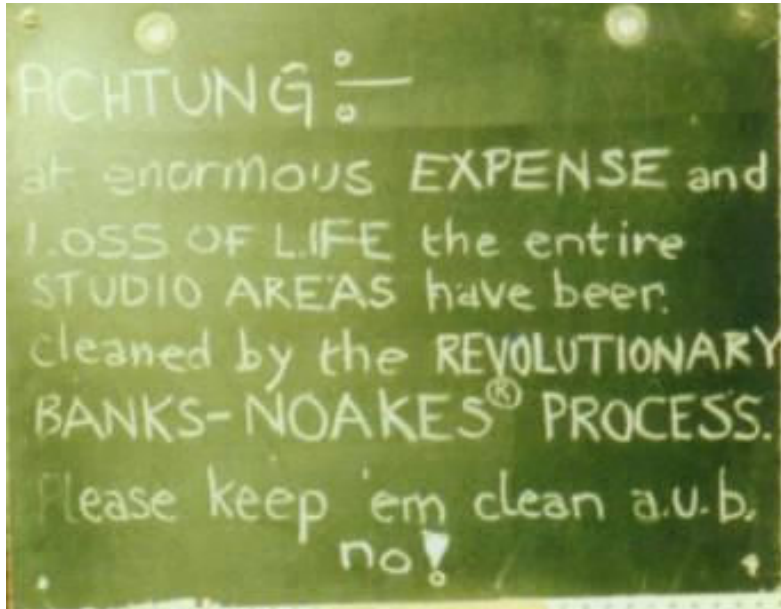 ACHTUNG :—
at enormous EXPENSE and
LOSS OF LIFE the entire
STUDIO AREAS have been
cleaned by the REVOLUTIONARY
BANKS-NOAKES® PROCESS.
Please keep 'em clean a.u.b.
no!